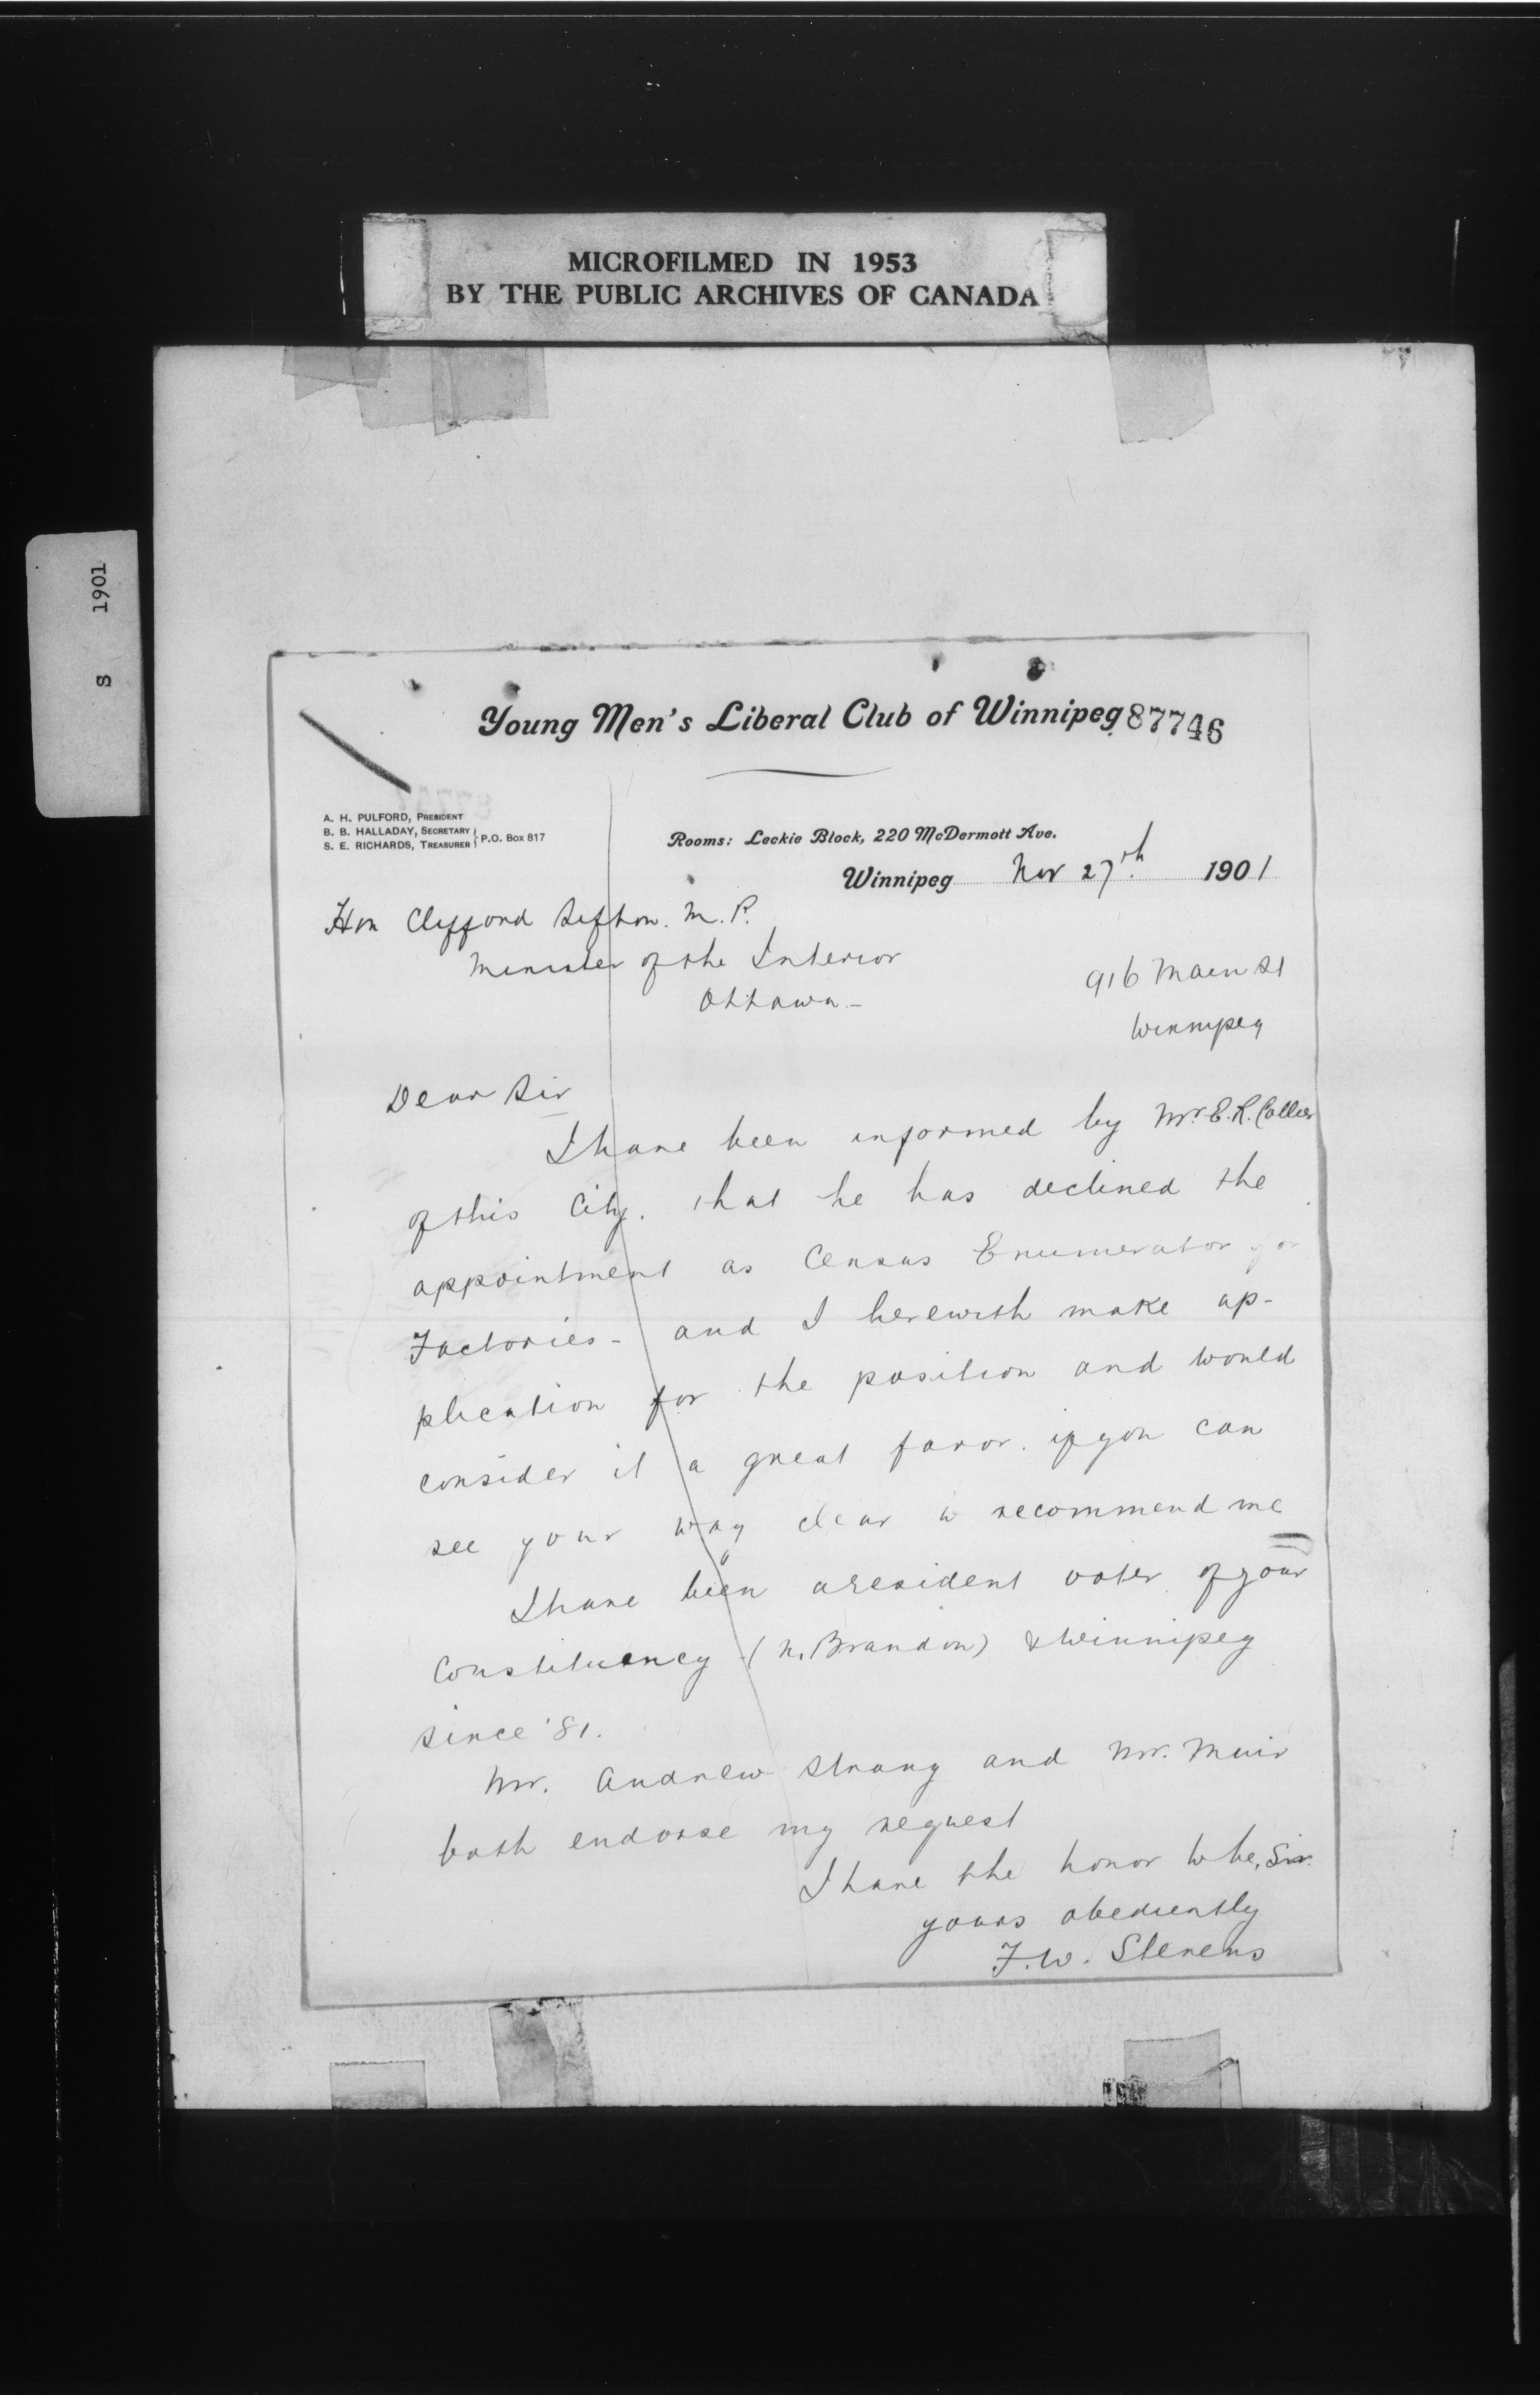 MICROFILMED IN 1953
BY THE PUBLIC ARCHIVES OF CANADA
S 1901
Young Men's Liberal Club of Winnipeg 87746
A. H. PULFORD, PRESIDENT
B. B. HALLADAY, SECRETARY
S. E. RICHARDS, TREASURER } P.O. Box 817
Rooms: Leckie Block, 220 McDermott Ave.
Winnipeg Nov 27th. 1901
Hon Clifford Sifton. M. P.
Minister of the Interior
Ottawa -
916 Main St
Winnipeg
Dear Sir
I have been informed by Mr. E. R. Collier
of this City. that he has declined the
appointment as Census Enumerator for
Factories - and I herewith make ap-
plication for the position and would
consider it a great favor. if you can
see your way clear to recommend me
I have been a resident voter of your
Constituency (N. Brandon) & Winnipeg
since '81.
Mr. Andrew Strang and Mr. Muir
both endorse my request
I have the honor to be, Sir.
yours obediently
F. W. Stevens